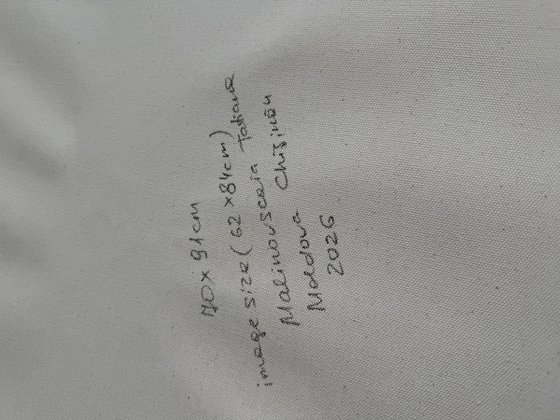 70 x 91cm
image size (62 x 84cm)
Malinovscaia Tatiana
Moldova Chișinău
2026